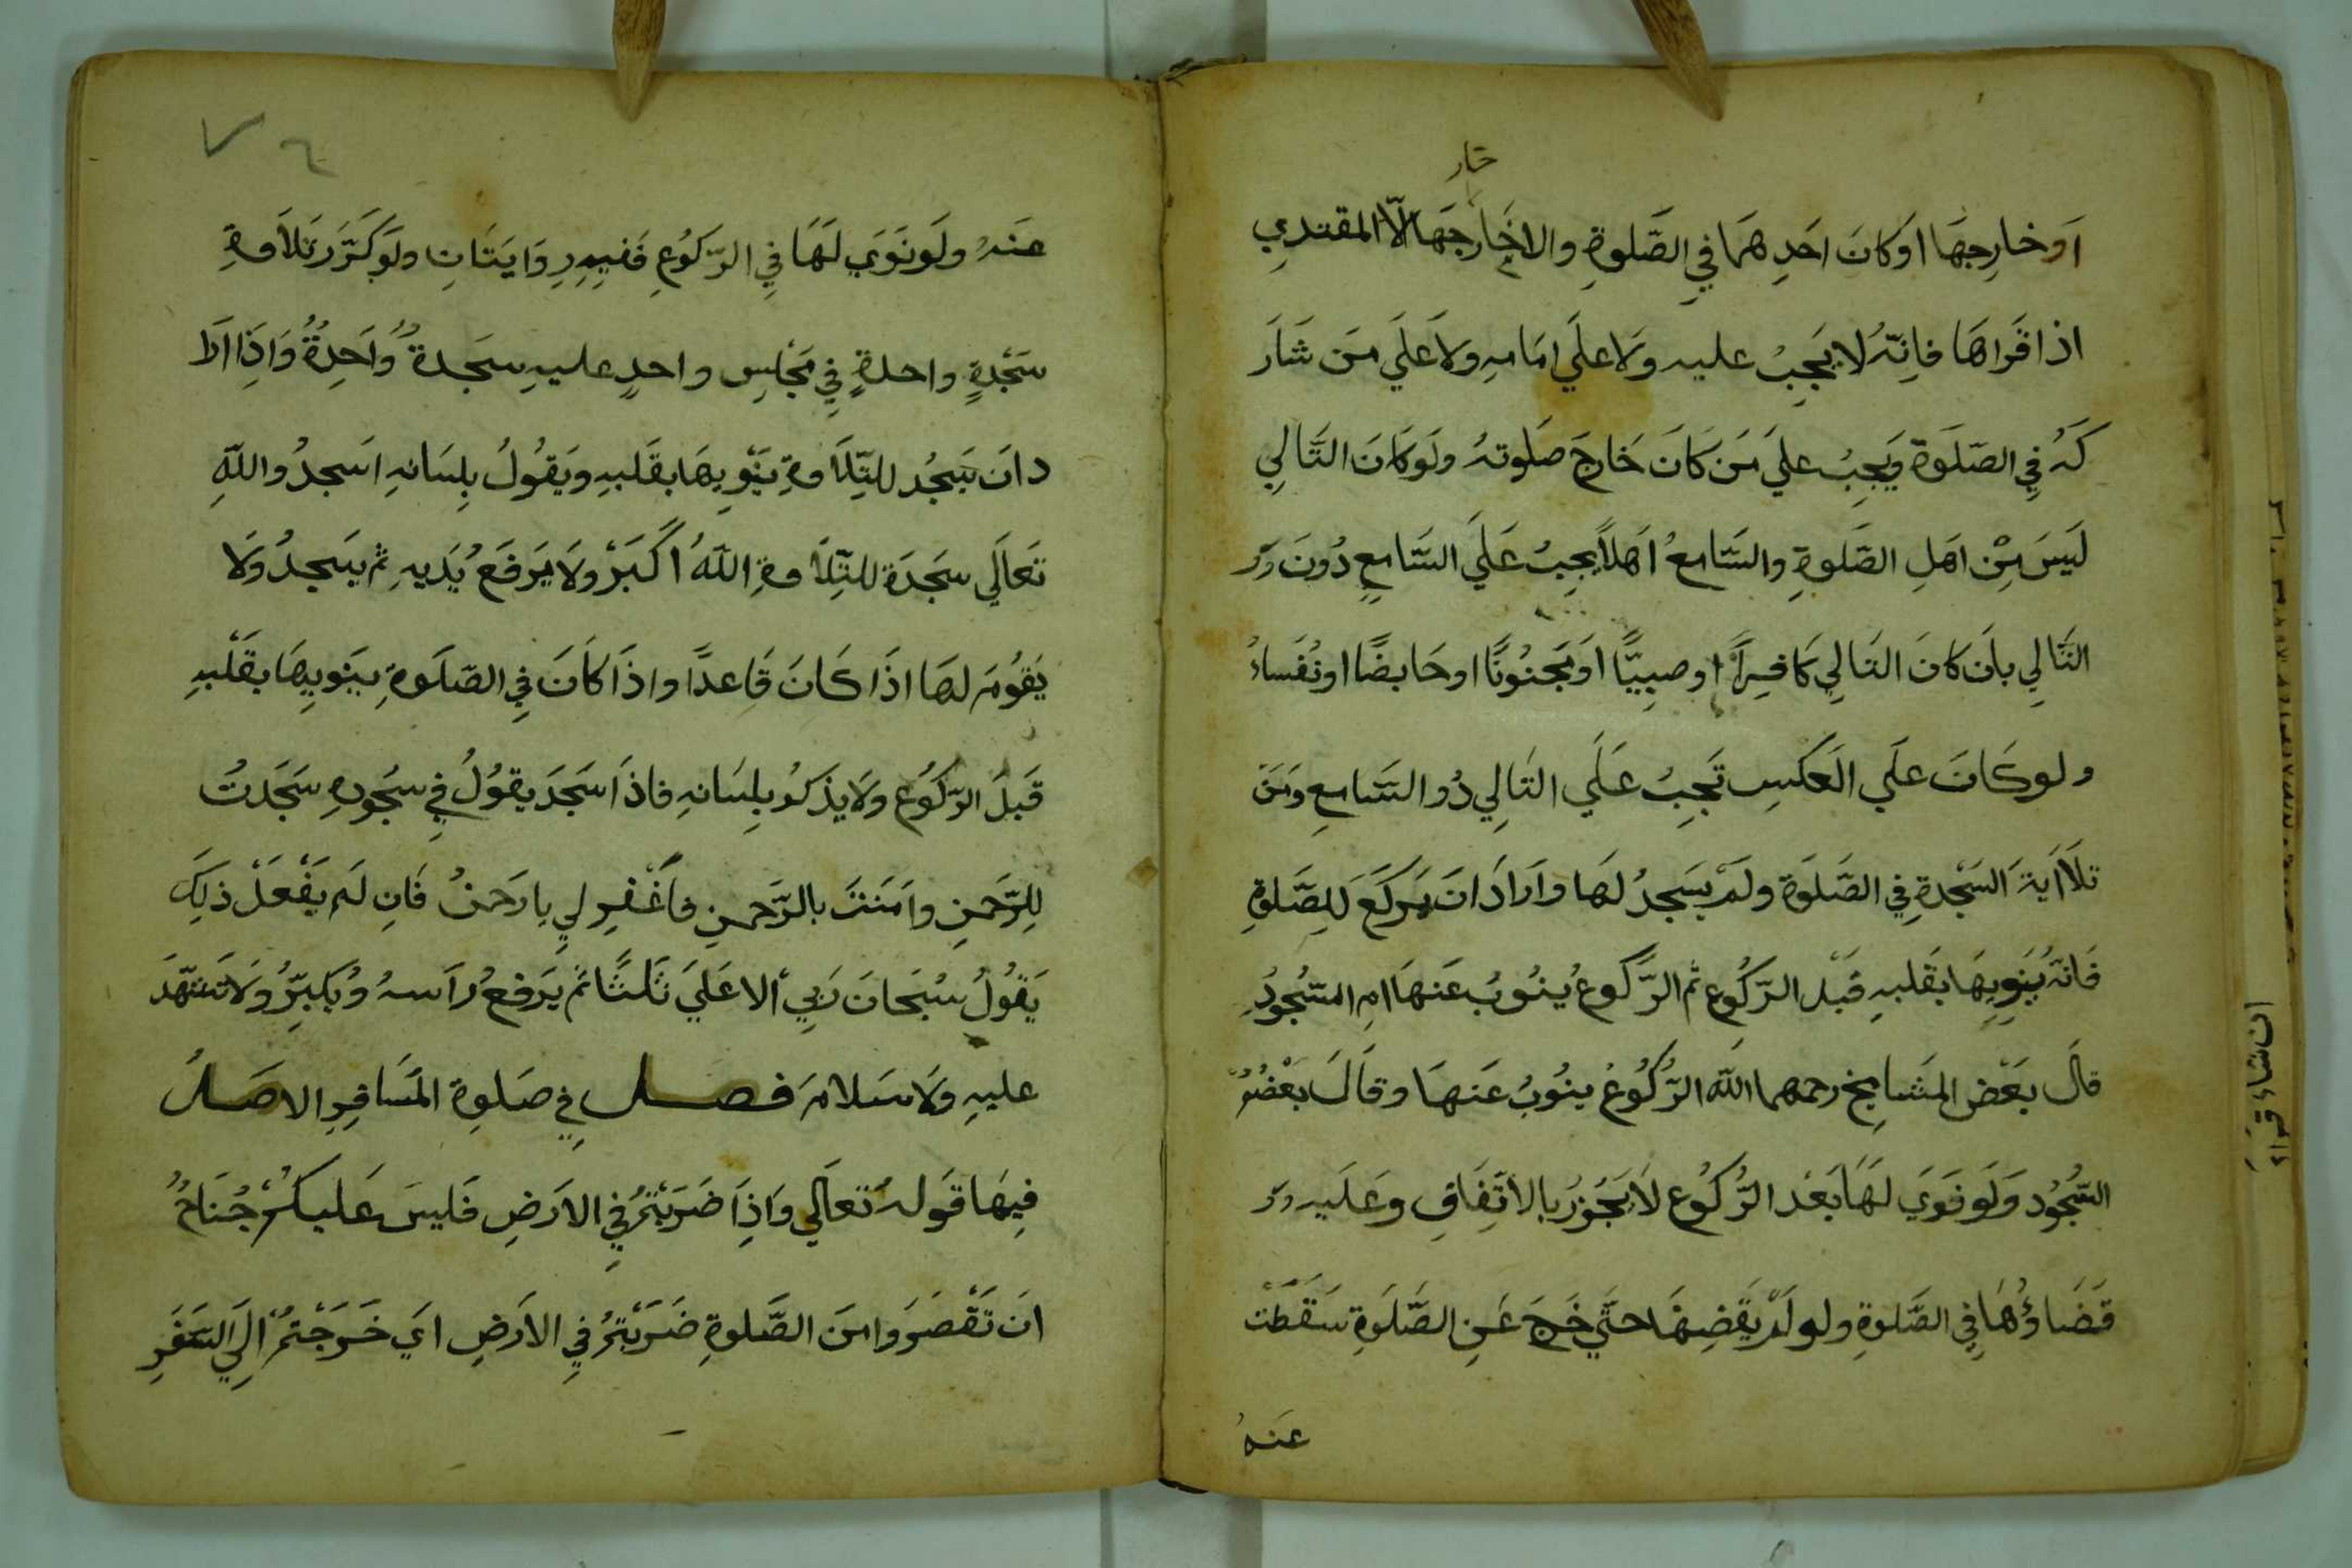 خار
اَو خارِجهَا اوكانَ اَحَدِهمَا في الصَّلوةِ والاخَارجَهَا الّا المقتدِي
اذا قَراهَا فاِنّهُ لا يَجِبُ عليه وَلا علَي امَامهِ ولاَ علَي مَن شَارَ
كَهُ فِي الصّلَوة وَيَجِبُ علَي مَن كَانَ خَارجَ صَلوتهُ ولَوكَانَ التَّالِي
لَيسَ مِنْ اهَلِ الصَّلوةِ والسَّامعُ اَهلاً يجِبُ عَلَي السَّامعِ دُونَ
التَّالِي باَن كانَ التَالِي كَافِراً او صبِيّاً اوَ مَجنُونًا او حَايضًا او نُفَساءُ
ولوكَانَ علَي العَكسِ تَجِبُ عَلَي التَالِي دُو السَّامعِ ومَن
تلاَ اَيةَ السَّجْدةِ فِي الصَّلوَة ولَمْ يسَجدُ لهَا واَرادَ انَ يَركَعَ لِلصَّلوةِ
فَانهُ يُنَوِيهَا بقَلبهِ قَبْل الرّكُوعِ ثم الرَّكوعُ يُنوُبُ عَنهَا امِ السّجُودِ
قالَ بعَضُ المشَايخ رحمهما اللّٰه الرّكُوعُ ينوُبُ عَنهَا وقالَ بعْضُهُمْ
السُّجُود وَلَو نَوَيَ لهَا بَعْد الرُّكُوع لاَ يَجَوزُ بالاتَفِاقِ وعَلَيه
قَضَاؤُهَا فِي الصَّلوةِ ولو لَمْ يَقَضِهَا حتَّي خَرجَ عَنِ الصَّلوَةِ سَقَطَتْ
عَنهُ
٧٦
عنَهُ ولَو نَوَي لهَا فِي الرّكوُعِ فَفِيهِ رِوَايتَانِ ولَو كَرّرَ تلاَوةِ
سَجْدةٍ واحدةٍ فِي مَجْلسٍ واحدٍ عليهِ سجَدةٌ وَاحِدةٌ وَاِذَا اَرَا
دانَ يَسَجُد للتِّلاَوةِ يَنْوِيهَا بقَلبهِ ويَقُولُ بلِسَانهِ اَسجدُ واللّٰهِ
تَعَالَي سجَدَة للتِّلاَوةِ اللّٰهُ اكَبَرْ ولاَ يَرفَعُ يُدَيهِ ثم يسَجدُ ولَا
يَقُومَ لهَا اذَا كَانَ قَاعدًا واذَا كَانَ فِي الصّلَوةِ يَنوِيهَا بقَلْبهِ
قَبلَ الرّكوُعِ ولاَ يذكرُ بلِسَانهِ فاذَا سَجَدَ يقوُلُ فِي سجُودهِ سَجَدتُ
للِرّحَمنِ واَمَنتُ بالرَّحمنِ فاَغْفرِ لي يا رَحَمنُ فَانِ لَم يَفْعَلْ ذلِكَ
يَقوُلُ سُبَحانَ رَبِيَ الاعَلَيَ ثَلثًا ثَم يَرفعُ رَاسهُ وُيُكبِرُّ وَلاَ تَشَهّدَ
عليهِ وَلَا سَلامَ فصل فِي صَلوةِ المسَافِرِ الاصَلُ
فِيهَا قَولهُ تَعالَي وَاِذَا ضَرَبتُمْ فِي الارَضِ فَليسَ عَليكمْ جُنَاحٌ
انَ تَقْصَرَوا منَ الصَّلوةِ ضَرَبتُمْ فِي الاَرَضِ اَي خَرَجتُمْ الَي السَفَرِ